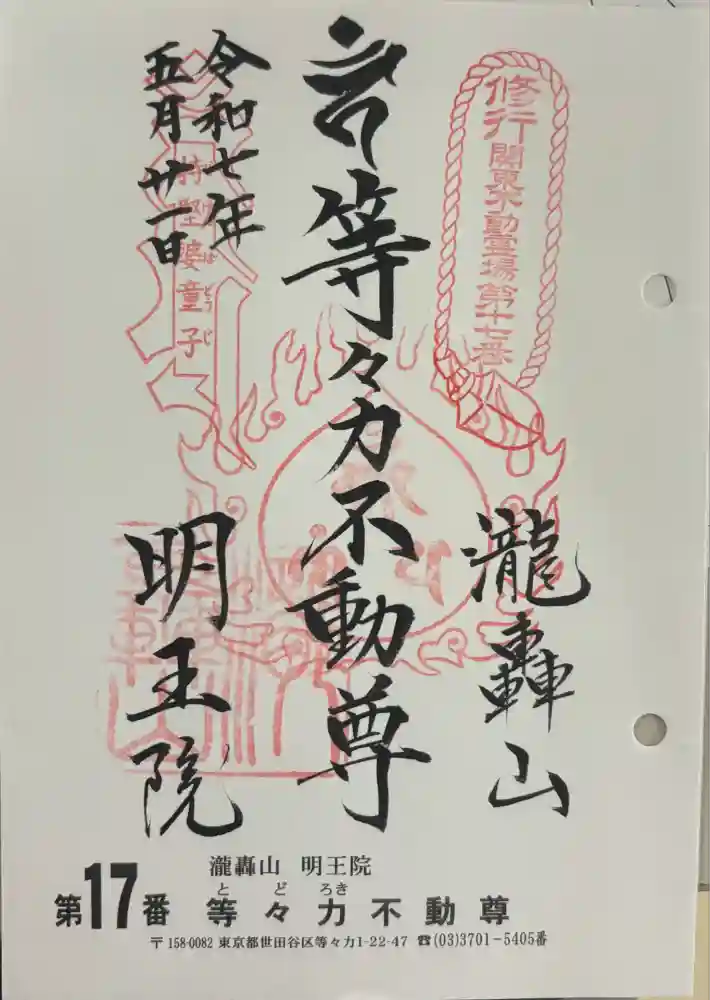 修行 関東不動霊場第十七番
等々力不動尊
瀧轟山
令和七年
五月廿一日
持堅婆童子
明王院
瀧轟山 明王院
とどろき
第17番 等々力不動尊
〒158-0082 東京都世田谷区等々力1-22-47 ☎(03)3701-5405番